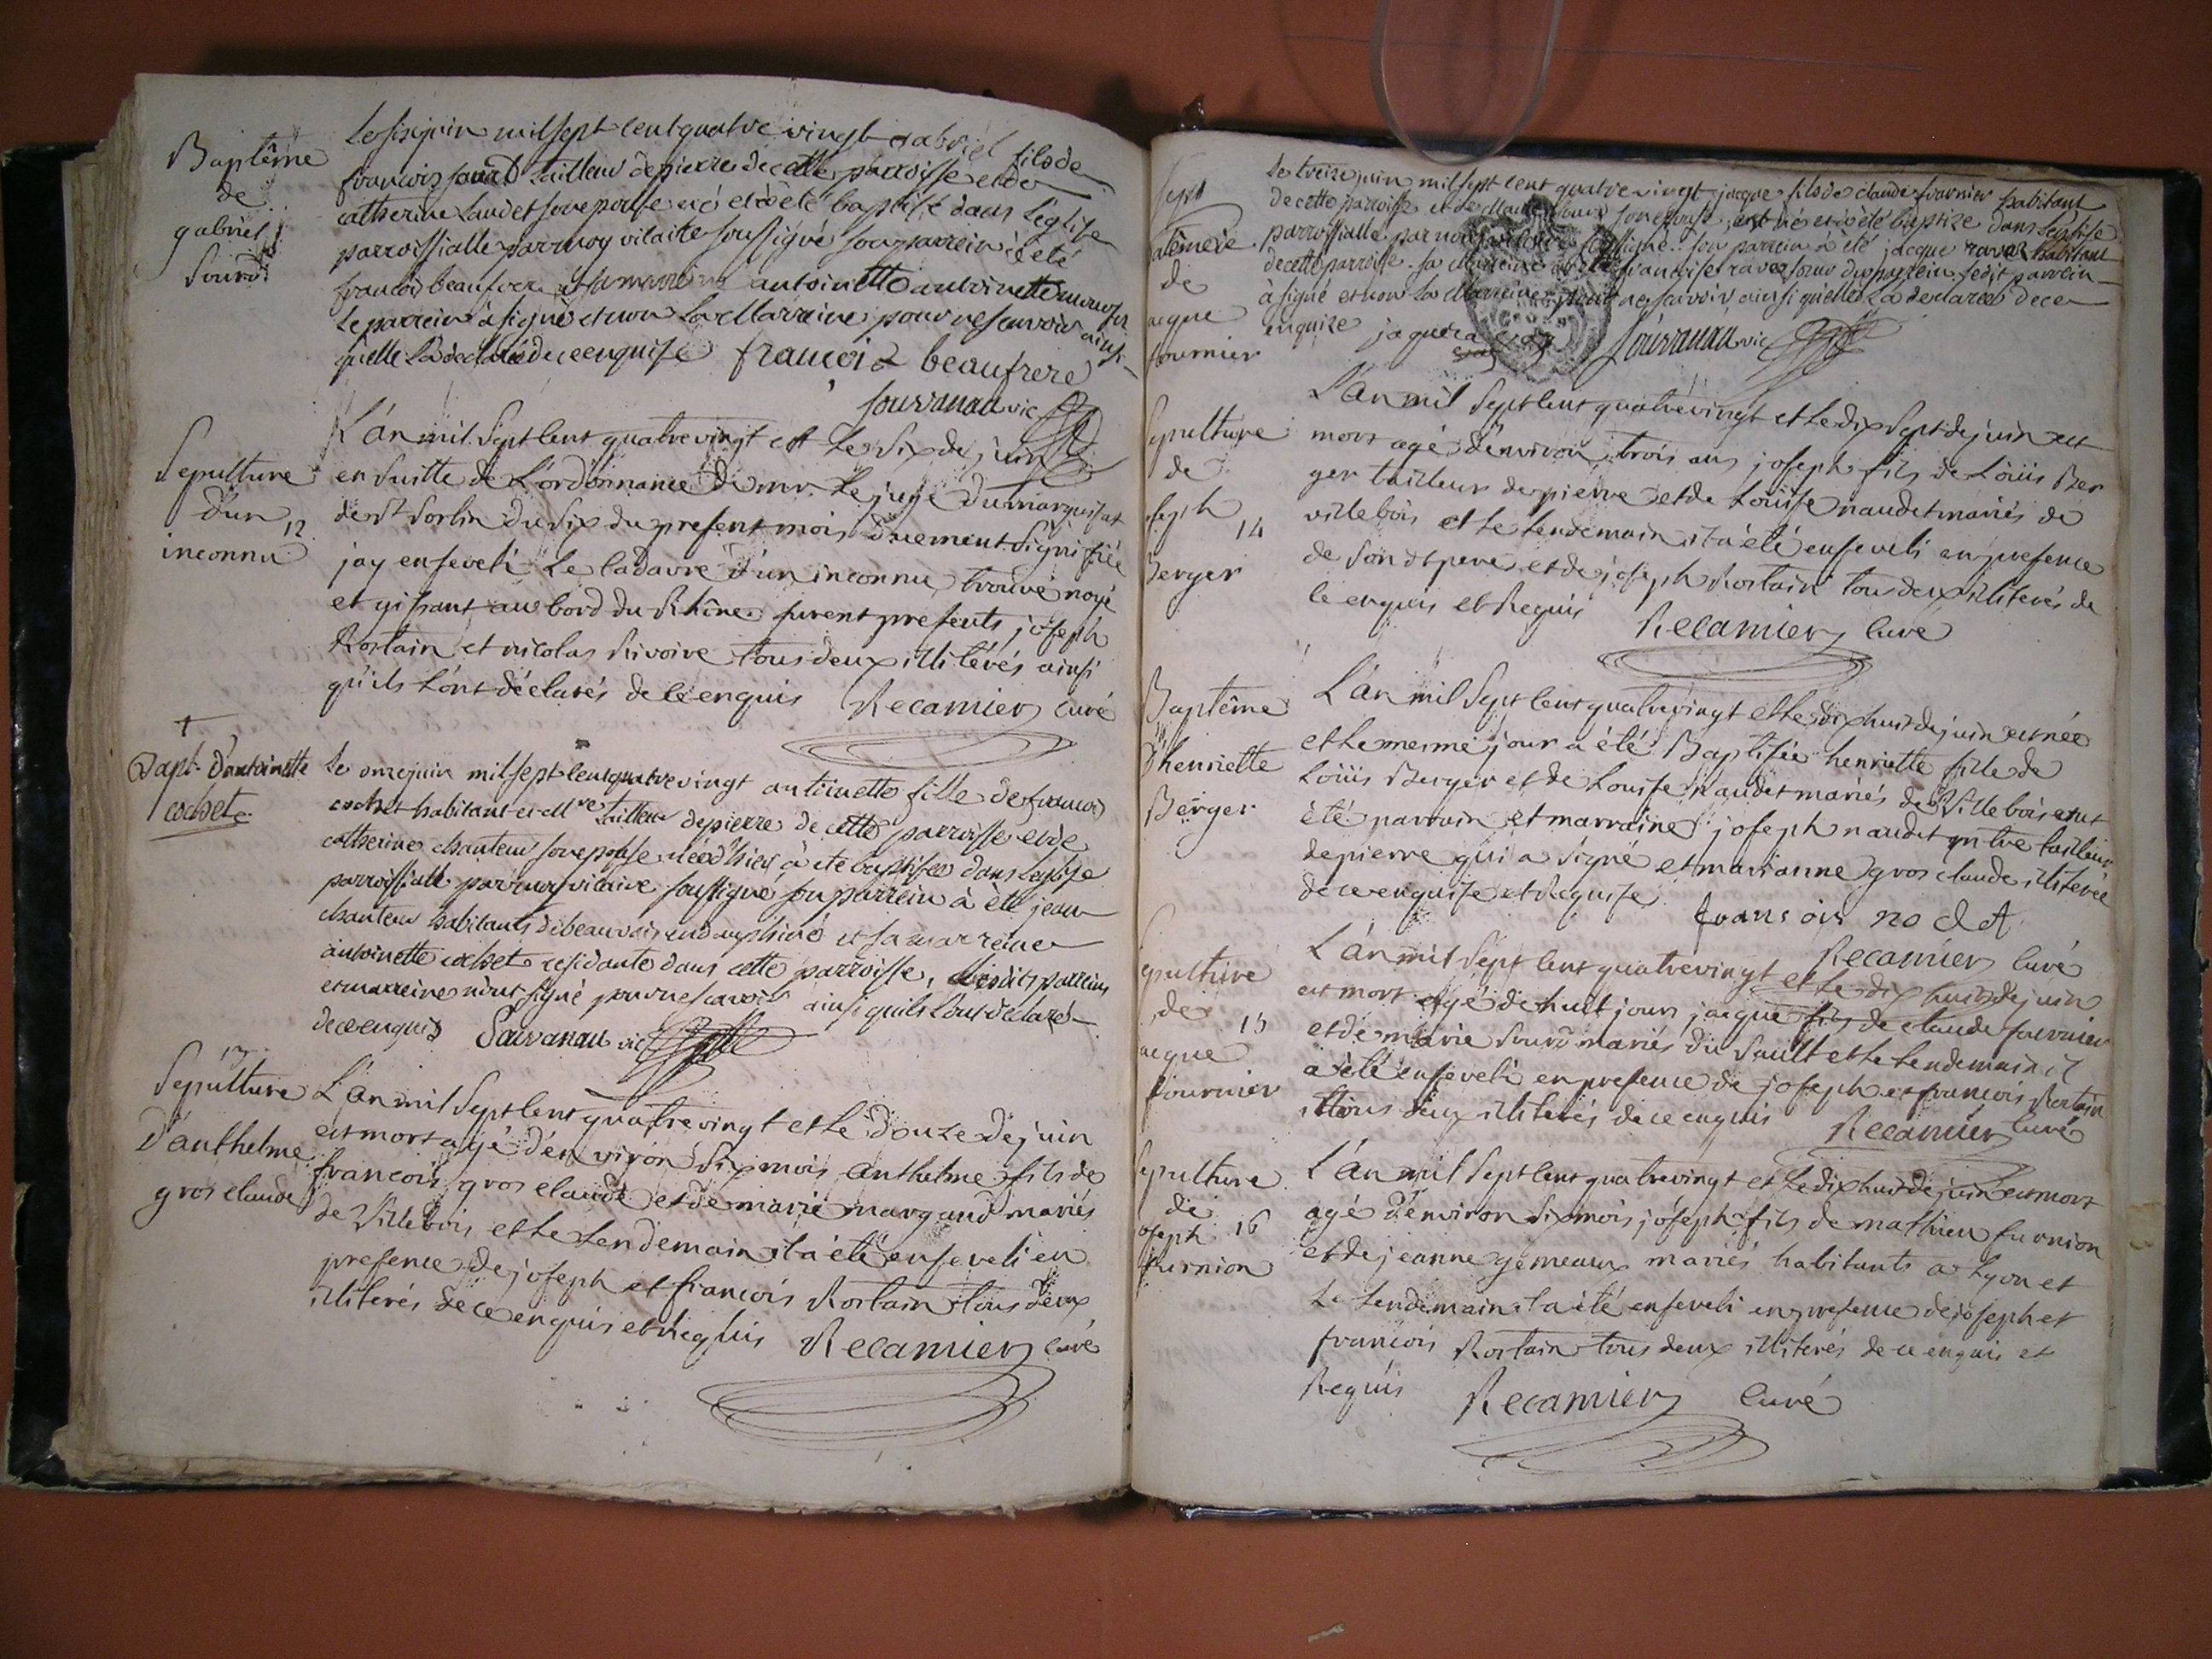 Baptême
de
gabriel
Sourd
Le six juin mil sept cent quatre vingt gabriel fils de
francois sourd tailleur de pierre de cette parroisse et de
catherine laudet son epouse né et à été baptisé dans l'église
parroissialle par moy vicaire soussigné son parrein à été
francois beaufrere et sa marreine antoinette antoinette
le parrein à signé et non la Marraine pour ne scavoir ainsi
quelle la declaré de ce enquise francoi beaufrere
souvanau vic
Sepulture
d'un
12
inconnu
L'an mil sept cent quatre vingt et le six de juin
en suitte de l'ordonnance de mr. le juge du marquisat
de st Sorlin du six du present mois duement signifiée
jay enseveli le cadavre d'un inconnu, trouvé noyé
et gissant au bord du Rhône, furent presents joseph
Rostain et nicolas Rivoire tous deux illitérés ainsi
qu'ils l'ont déclarés de ce enquis Recamier curé
Bapt. d'antoinette
cochet
Le onze juin mil sept cent quatre vingt antoinette fille de francois
cochet habitant et Mre tailleur de pierre de cette parroisse et de
catherine chanteur son epouse née d'hier à été baptisée dans l'eglise
parroissialle par moy vicaire soussigné son parrein à été jean
chanteur habitant de beauvois en dauphiné et sa marreine
antoinette cochet residante dans cette parroisse, lesdits parrein
et marreine n'ont signé pour ne scavoir ainsi quils l'ont déclaré
de ce enquis Sauvanau vic
13
Sepulture
D'anthelme
gros claude
L'an mil sept cent quatre vingt et le douze de juin
est mort agé d'environ six mois anthelme fils de
francois gros claude et de marie margand mariés
de Villebois et le lendemain il a été enseveli en
presence de joseph et francois Rostain tous deux
illiterés de ce enquis et Requis Recamier curé
de
acque
fournier
Le treize juin mil sept cent quatre vingt jacque fils de claude fournier habitant
de cette parroisse et de Marie sourd son epouse, est né et à été baptize dans l'eglise
parroissialle par nous vicaire soussigné. son parrein à été jacque ravat habitant
de cette parroise. sa Marreine à été francoise ravat soeur du parrein, ledit parrein
à signé et non la Marreine pour ne scavoir ainsi quelle la declaréé de ce
enquize jaque ravat souvanau vic
epulture
de
oseph
14
Berger
L'an mil sept cent quatre vingt et le dix sept de juin est
mort agé d'environ trois ans joseph fils de Loüis Ber
ger tailleur de pierre et de Loüise naudet mariés de
villebois et le lendemain il a été enseveli en presence
de son dt pere et de joseph Rostain tous deux illiterés de
ce enquis et Requis Recamier Curé
Baptême
d'henriette
Berger
L'an mil sept cent quatre vingt et le dix huit de juin est née
et le mesme jour a été Baptisée henriette fille de
Loüis Berger et de Louise naudet mariés de Villebois ont
été parrain et marraine joseph naudet mtre tailleur
de pierre qui a signé et marianne gros claude illiterée
de ce enquise et Requise fransois nodet
Recamier Curé
epulture
de
15
acque
fournier
L'an mil sept cent quatre vingt et le dix huit de juin
est mort agé de huit jours jacque fils de claude fournier
et de marie sourd mariés du Sault et le lendemain il
a été enseveli en presence de joseph et francois Rostain
tous deux illiterés de ce enquis Recamier Curé
epulture
de
oseph 16
furnion
L'an mil sept cent quatre vingt et le dix huit de juin est mort
agé d'environ six mois, joseph fils de mathieu furnion
et de jeanne gemeaux mariés habitants a Lyon et
le lendemain il a été enseveli en presence de joseph et
francois Rostain tous deux illitérés de ce enquis et
Requis Recamier Curé